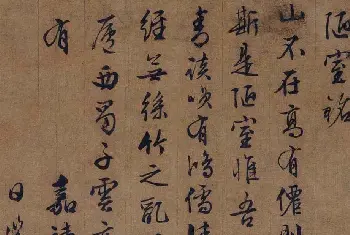 陋室銘
山不在高有僊則
斯是陋室惟吾
青談唉有鴻儒
經無絲竹之亂
廬西蜀子雲
有
嘉靖
日